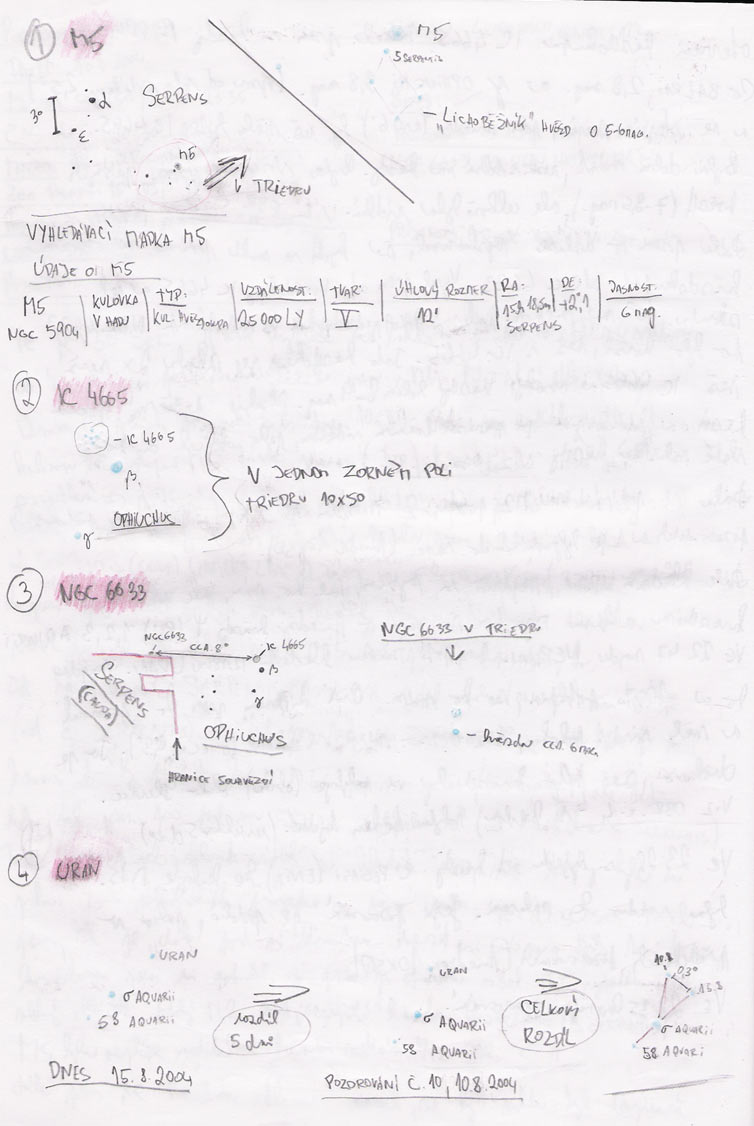 1 M5
3°
α
SERPENS
ε
M5
V TRIEDRU
M5
5 SERPENTIS
- "LICHOBĚŽNÍK" HVĚZD O 5-6 MAG.
VYHLEDÁVACÍ MAPKA M5
ÚDAJE O: M5
M5
NGC 5904
KULOVKA
V HADU
TYP:
KUL. HVĚZDOKUPA
VZDÁLENOST:
25 000 LY
TVAR:
V
ÚHLOVÝ ROZMĚR
12'
RA:
15h 18,5m
SERPENS
DE
+2°,1
JASNOST:
6 mag.
2 IC 4665
- IC 4665
β
OPHIUCHUS
γ
V JEDNOM ZORNÉM POLI
TRIEDRU 10x50
3 NGC 6633
NGC 6633
CCA. 8°
IC 4665
β
γ
SERPENS
(CAUDA)
OPHIUCHUS
HRANICE SOUHVĚZDÍ
NGC 6633 V TRIEDRU
- hvězdy CCA. 6 MAG.
4 URAN
URAN
σ AQUARII
58 AQUARII
DNES 15.8.2004
rozdíl
5 dní
URAN
σ AQUARII
58 AQUARII
POZOROVÁNÍ Č. 10, 10.8.2004
CELKOVÝ
ROZDÍL
10.8
0,3°
15.8
σ AQUARII
58 AQUARII